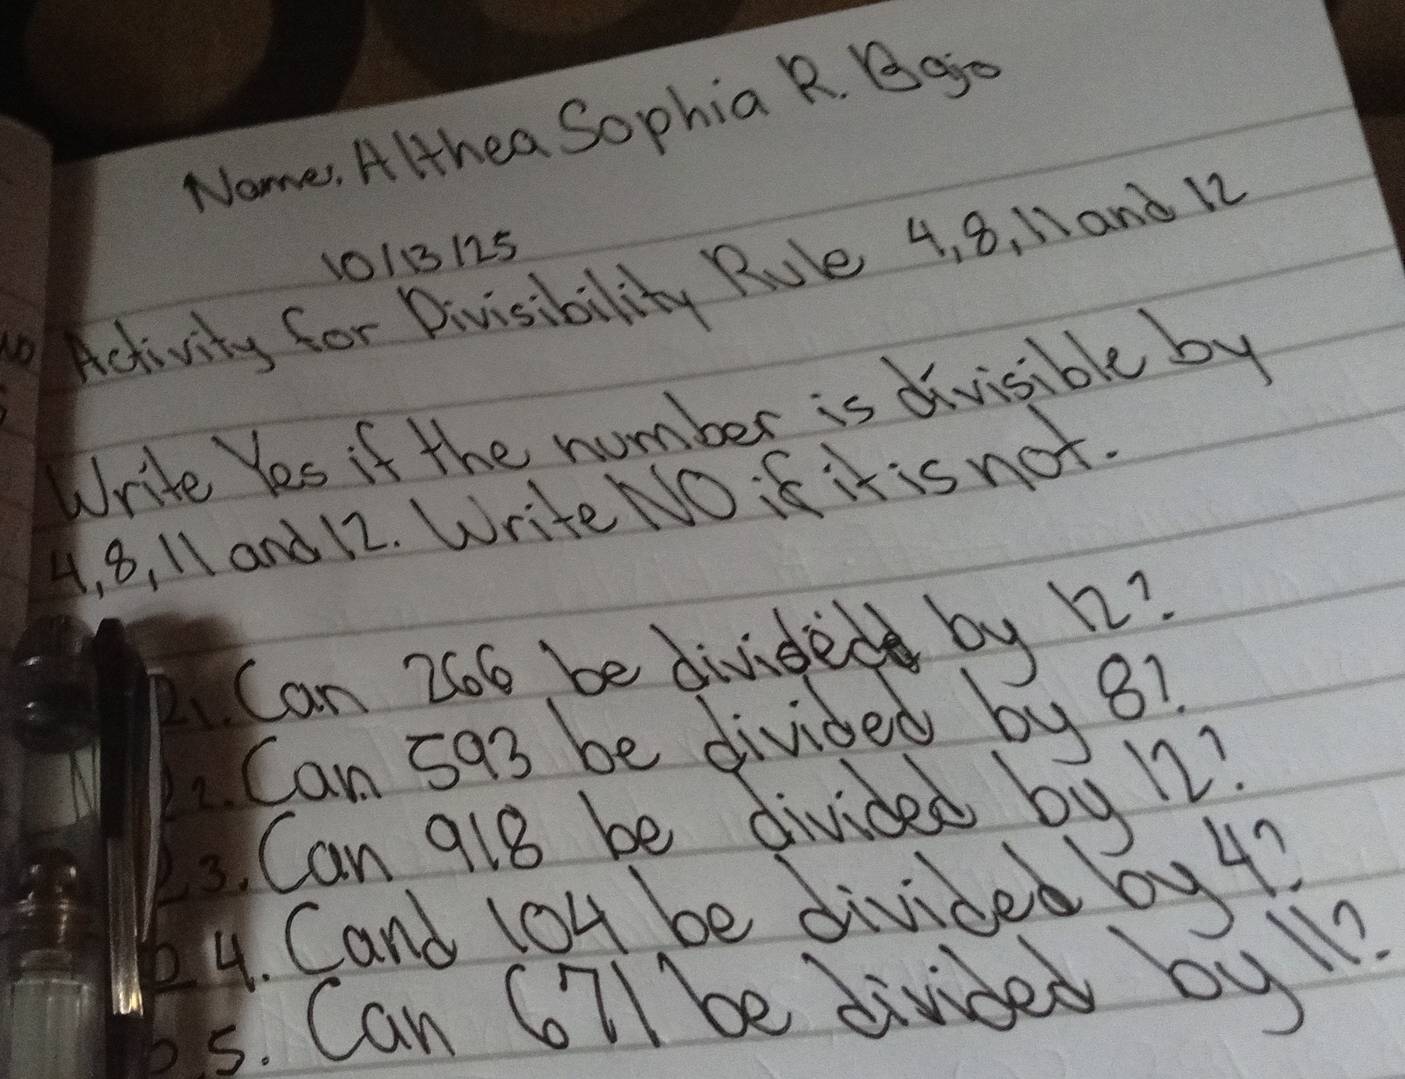 Name, Althea Sophia R. Bajo
10/13/25
Activity for Divisibility Rule 4,8,11 and 12
Write Yes if the number is divisible by
4,8,11 and 12. Write NO if it is not.
1. Can 266 be divided by 12?
2. Can 593 be divided by 8?
3. Can 918 be divided by 12?
4. Cand 104 be divided by 4?
5. Can 671 be divided by 11?